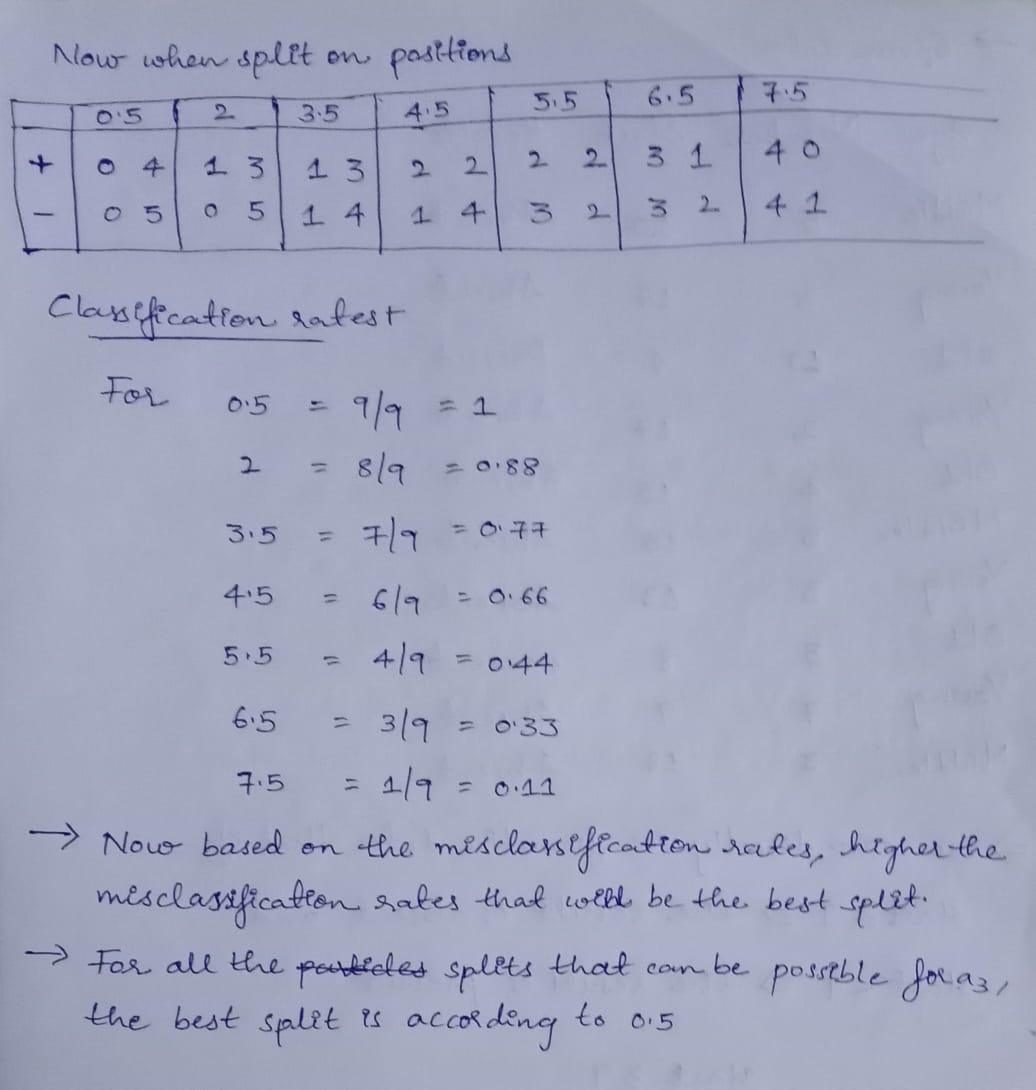 Now when split on positions
0.5 2 3.5 4.5 5.5 6.5 7.5
+ 0 4 1 3 1 3 2 2 2 2 3 1 4 0
- 0 5 0 5 1 4 1 4 3 2 3 2 4 1
Classification rates:
For 0.5 = 9/9 = 1
2 = 8/9 = 0.88
3.5 = 7/9 = 0.77
4.5 = 6/9 = 0.66
5.5 = 4/9 = 0.44
6.5 = 3/9 = 0.33
7.5 = 1/9 = 0.11
→ Now based on the misclassification rates, higher the
misclassification rates that will be the best split.
→ For all the splits that can be possible for a3,
the best split is according to 0.5